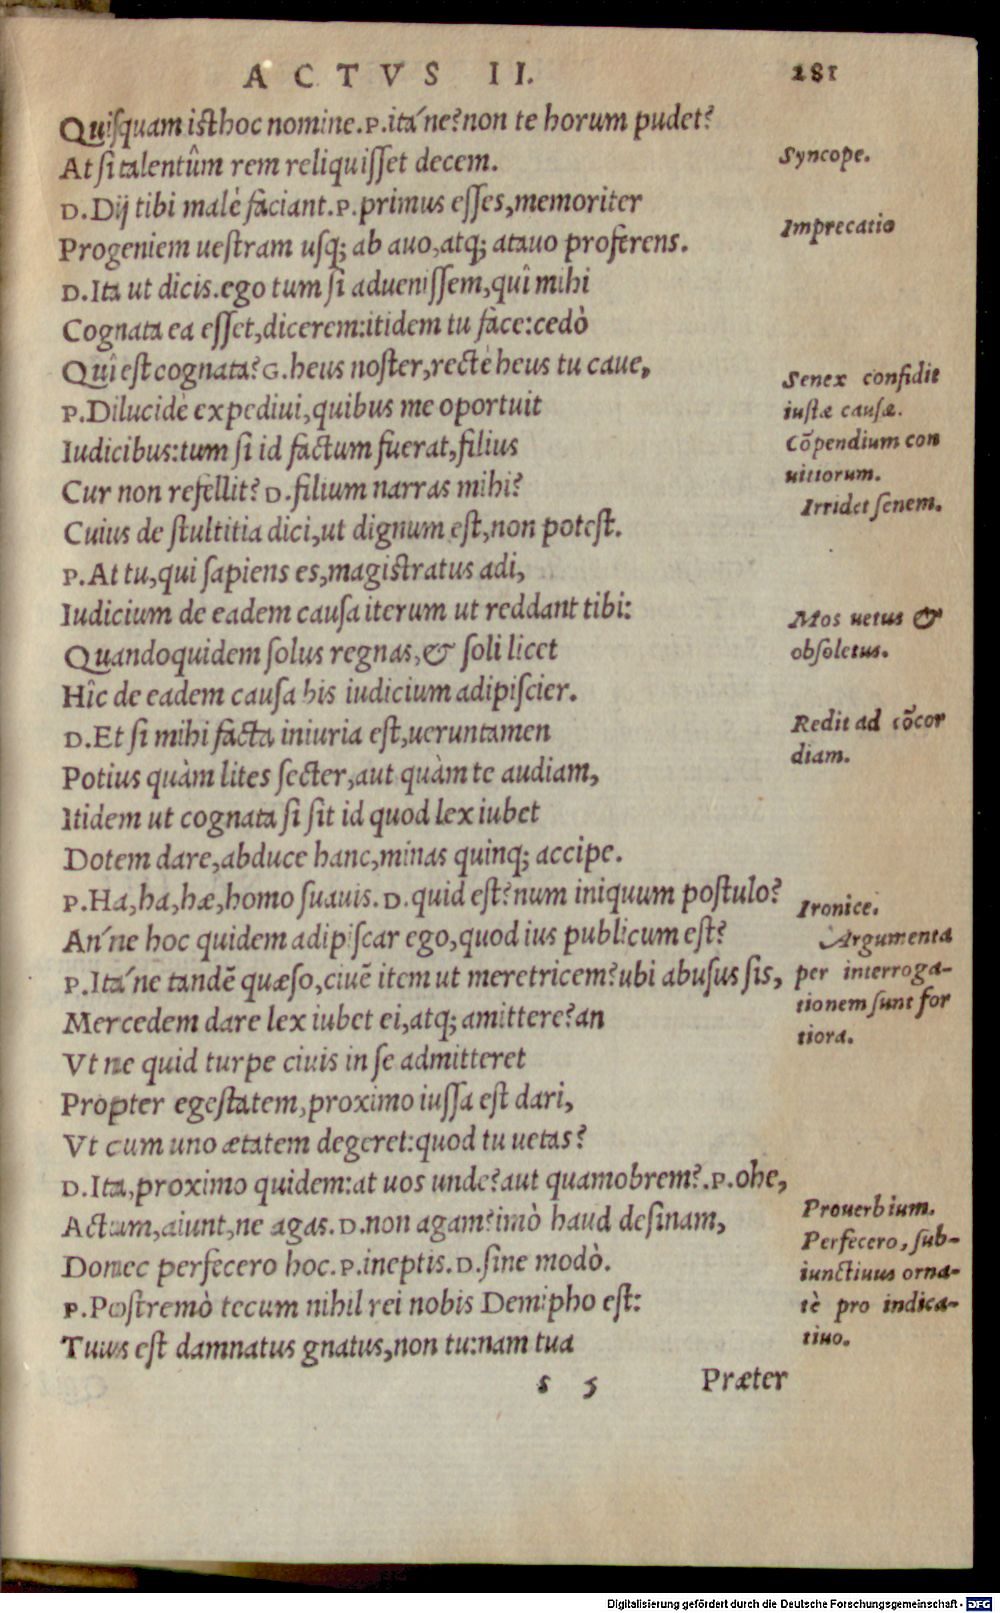 ACTVS II. 281
Quiſquam iſthoc nomine. P. itá ne? non te horum pudet?
At ſi talentûm rem reliquiſſet decem.
D. Dij tibi malè faciant. P. primus eſſes, memoriter
Progeniem ueſtram uſq; ab auo, atq; atauo proferens.
D. Ita ut dicis. ego tum ſi adueniſſem, quî mihi
Cognata ea eſſet, dicerem: itidem tu face: cedò
Quî eſt cognata? G. heus noſter, rectè heus tu caue,
P. Dilucidè expediui, quibus me oportuit
Iudicibus: tum ſi id factum fuerat, filius
Cur non refellit? D. filium narras mihi?
Cuius de ſtultitia dici, ut dignum eſt, non poteſt.
P. At tu, qui ſapiens es, magiſtratus adi,
Iudicium de eadem cauſa iterum ut reddant tibi:
Quandoquidem ſolus regnas, & ſoli licet
Hîc de eadem cauſa bis iudicium adipiſcier.
D. Et ſi mihi facta iniuria eſt, ueruntamen
Potius quàm lites ſecter, aut quàm te audiam,
Itidem ut cognata ſi ſit id quod lex iubet
Dotem dare, abduce hanc, minas quinq; accipe.
P. Ha, ha, hæ, homo ſuauis. D. quid eſt? num iniquum poſtulo?
An´ne hoc quidem adipiſcar ego, quod ius publicum eſt?
P. Itá ne tandẽ quæſo, ciuẽ item ut meretricem? ubi abuſus ſis,
Mercedem dare lex iubet ei, atq; amittere? an
Vt ne quid turpe ciuis in ſe admitteret
Propter egeſtatem, proximo iuſſa eſt dari,
Vt cum uno ætatem degeret: quod tu uetas?
D. Ita, proximo quidem: at uos unde? aut quamobrem?. P. ohe,
Actum, aiunt, ne agas. D. non agam? imò haud deſinam,
Donec perfecero hoc. P. ineptis. D. ſine modò.
P. Poſtremò tecum nihil rei nobis Demipho eſt:
Tuus eſt damnatus gnatus, non tu: nam tua
s 5 Præter
Syncope.
Imprecatio
Senex confidit
iuſtæ cauſæ.
Cõpendium con
uitiorum.
Irridet ſenem.
Mos uetus &
obſoletus.
Redit ad cõcor
diam.
Ironice.
Argumenta
per interroga-
tionem ſunt for
tiora.
Prouerbium.
Perfecero, ſub-
iunctiuus orna-
tè pro indica-
tiuo.
Digitalisierung gefördert durch die Deutsche Forschungsgemeinschaft - DFG